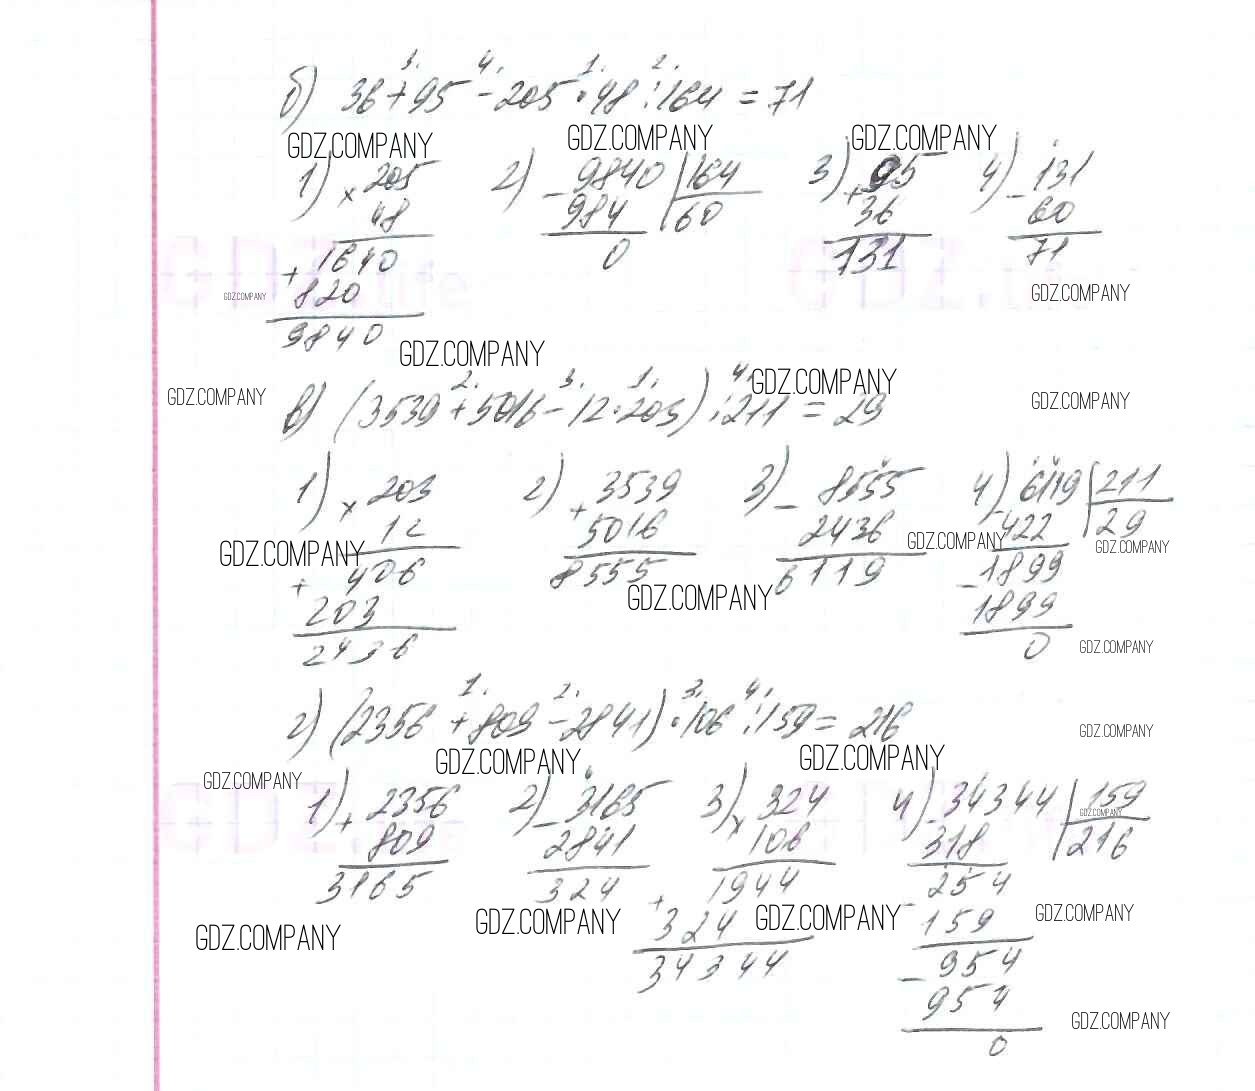 б) 36 + 95 - 205 · 48 : 164 = 71
3. 4. 1. 2.
GDZ.COMPANY GDZ.COMPANY GDZ.COMPANY
1) × 205 2) - 9840 | 164 3) + 95 4) - 131
48 984 | 60 36 60
1640 0 131 71
+ 820
9840
GDZ.COMPANY GDZ.COMPANY
GDZ.COMPANY
GDZ.COMPANY GDZ.COMPANY GDZ.COMPANY
2. 3. 1. 4.
в) (3539 + 5016 - 12 · 203) : 211 = 29
1) × 203 2) + 3539 3) - 8555 4) - 6119 | 211
12 5016 2436 422 | 29
+ 406 8555 6119 - 1899
203 1899
2436 0
GDZ.COMPANY GDZ.COMPANY GDZ.COMPANY
GDZ.COMPANY
GDZ.COMPANY
1. 2. 3. 4.
г) (2356 + 809 - 2841) · 106 : 159 = 216
GDZ.COMPANY
GDZ.COMPANY GDZ.COMPANY
GDZ.COMPANY
1) + 2356 2) - 3165 3) × 324 4) - 34344 | 159
809 2841 106 318 | 216
3165 324 1944 - 254
+ 324 159
34344 - 954
954
0
GDZ.COMPANY
GDZ.COMPANY GDZ.COMPANY GDZ.COMPANY GDZ.COMPANY
GDZ.COMPANY